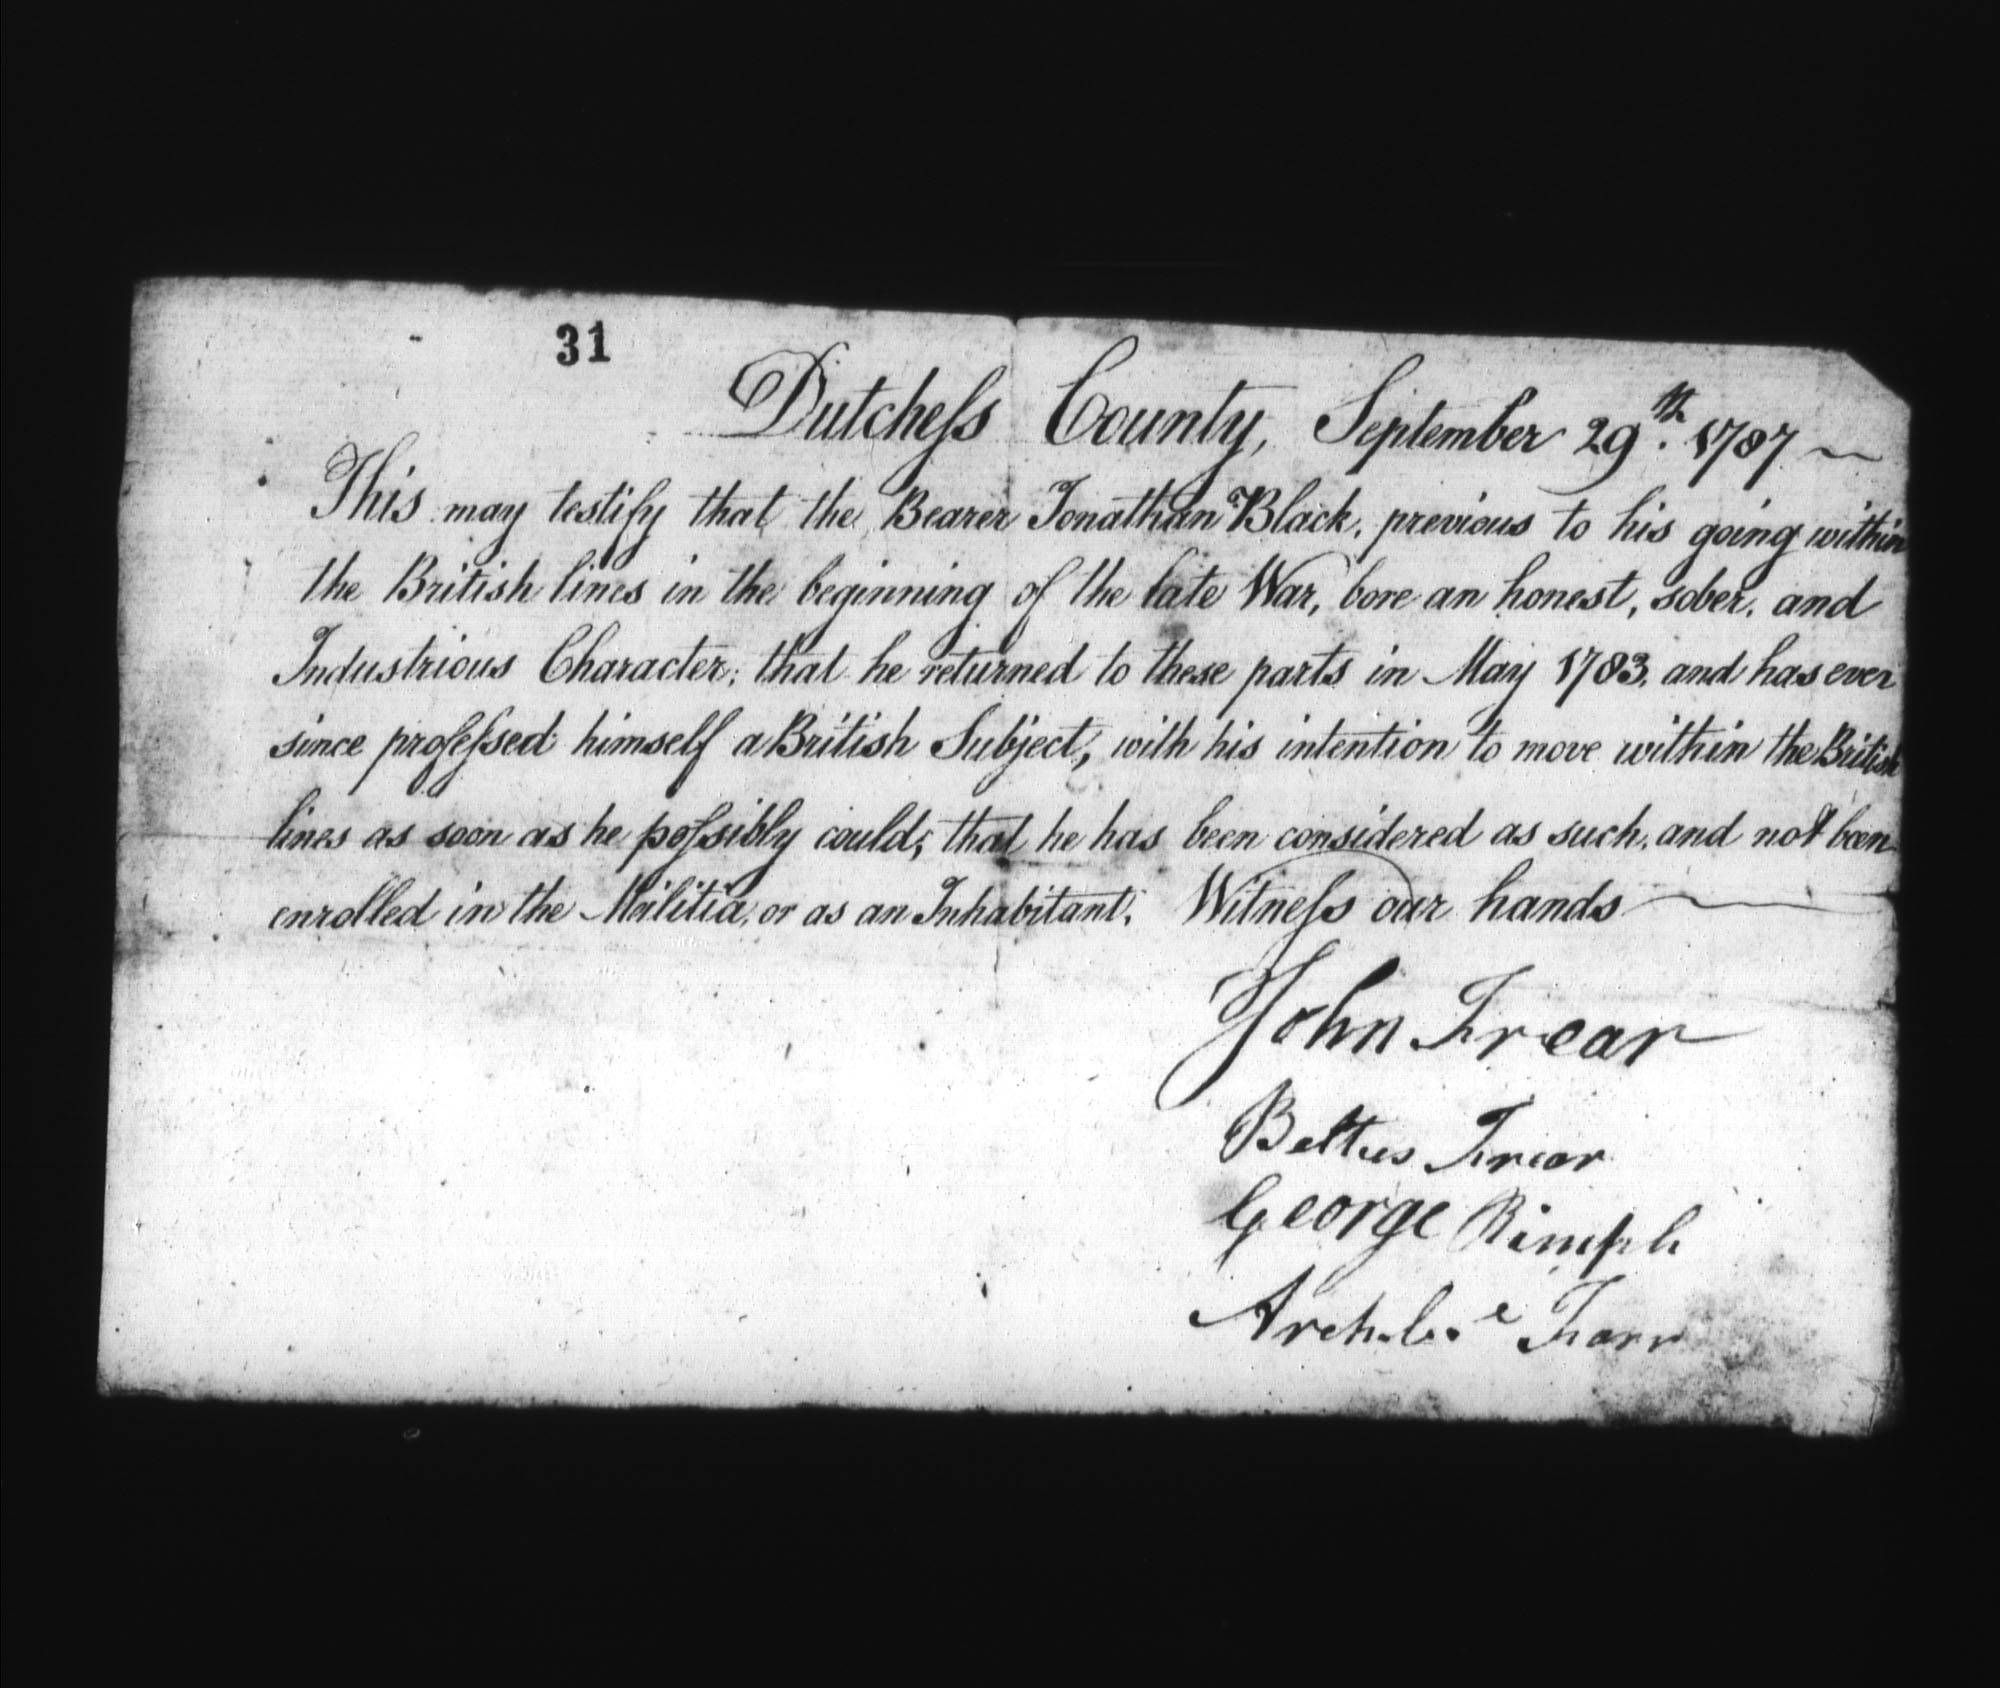 31
Dutchess County, September 29th. 1787
This may testify that the Bearer Jonathan Black, previous to his going within
the British lines in the beginning of the late War, bore an honest, sober, and
Industrious Character; that he returned to these parts in May 1783, and has ever
since professed himself a British Subject, with his intention to move within the British
lines as soon as he possibly could; that he has been considered as such, and not been
enrolled in the Militia, or as an Inhabitant. Witness our hands
John Frear
Baltus Frear
George